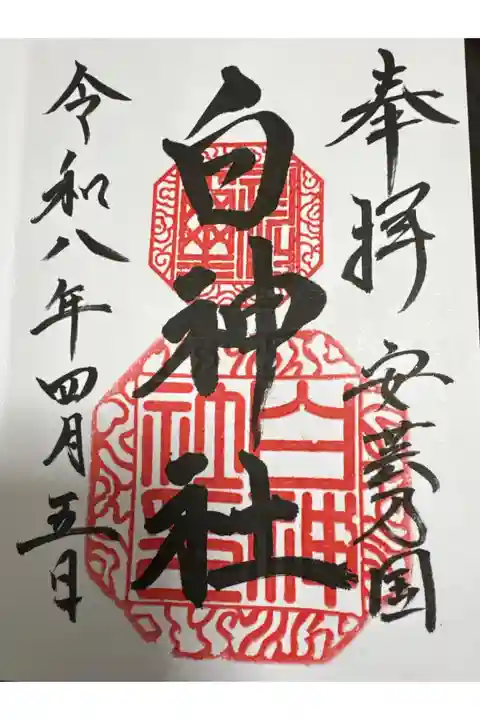 奉拝
安芸乃国
白神社
令和八年四月五日
白神
社璽